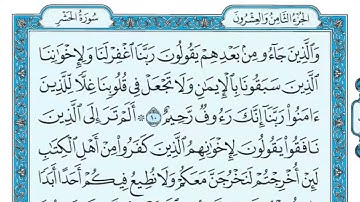 الجزء الثامن والعشرون
سورة الحشر
وَالَّذِينَ جَاءُو مِنۢ بَعْدِهِمْ يَقُولُونَ رَبَّنَا اغْفِرْ لَنَا وَلِإِخْوَانِنَا
الَّذِينَ سَبَقُونَا بِالْإِيمَانِ وَلَا تَجْعَلْ فِي قُلُوبِنَا غِلًّا لِّلَّذِينَ
ءَامَنُوا رَبَّنَا إِنَّكَ رَءُوفٌ رَّحِيمٌ ١٠ ۞ أَلَمْ تَرَ إِلَى الَّذِينَ
نَافَقُوا يَقُولُونَ لِإِخْوَانِهِمُ الَّذِينَ كَفَرُوا مِنْ أَهْلِ الْكِتَابِ
لَئِنْ أُخْرِجْتُمْ لَنَخْرُجَنَّ مَعَكُمْ وَلَا نُطِيعُ فِيكُمْ أَحَدًا أَبَدًا